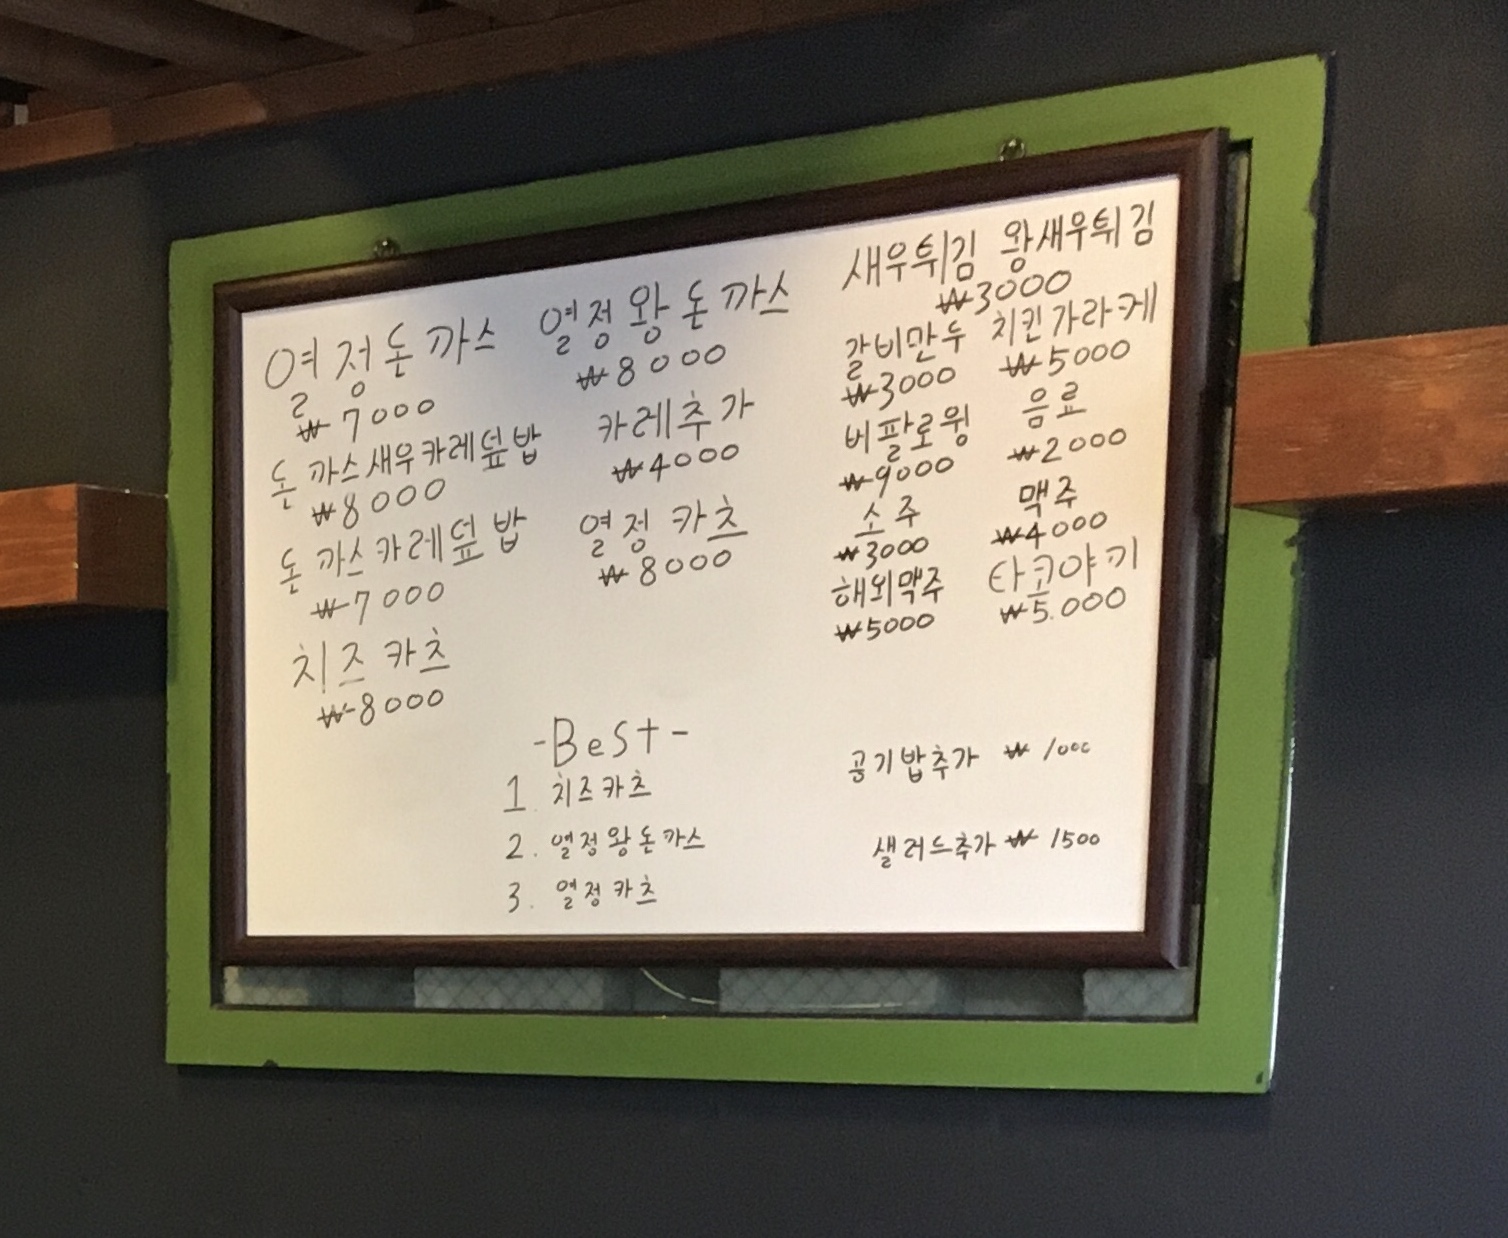 열정돈까스 열정왕돈까스
₩7000 ₩8000
돈까스새우카레덮밥 카레추가
₩8000 ₩4000
돈까스카레덮밥 열정카츠
₩7000 ₩8000
치즈카츠
₩8000
새우튀김 왕새우튀김
₩3000
갈비만두 치킨가라케
₩3000 ₩5000
버팔로윙 음료
₩9000 ₩2000
소주 맥주
₩3000 ₩4000
해외맥주 타코야끼
₩5000 ₩5.000
-BeSt-
1. 치즈카츠
2. 열정왕돈까스
3. 열정카츠
공기밥추가 ₩ 1000
샐러드추가 ₩ 1500